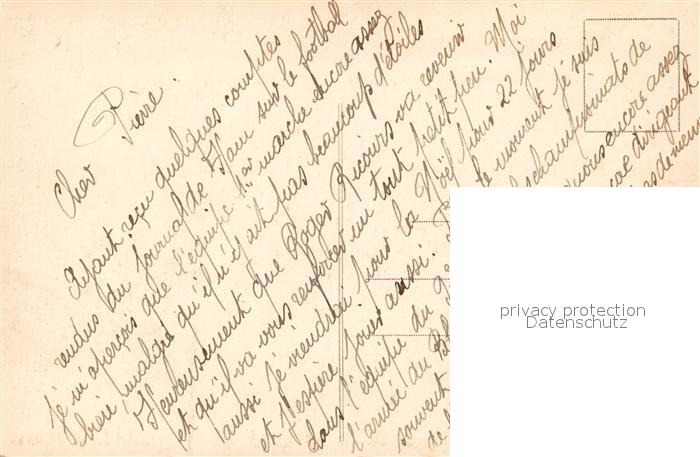 Cher Pierre.
Ayant reçu quelques comptes
rendus du journal de Ham sur le football
je m'aperçois que l'équipe 1er marche encore assez
bien, malgré qu'il n'y ait pas beaucoup d'étoiles
Heureusement que Roger Ricours va revenir
et qu'il va vous renforcer un tout petit peu. Moi
aussi je viendrai pour la Noël pour 22 jours
et j'espère jouer aussi. le moment je suis
dans l'équipe du championnats de
l'armée du nous encore assez
souvent dirigeant
de
privacy protection
Datenschutz